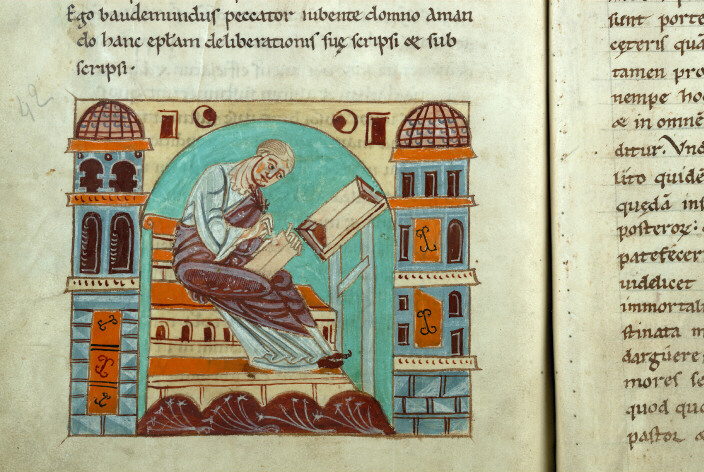 Ego baudemundus peccator iubente domno aman
do hanc epłam deliberationis suę scripsi & sub
scripsi.
42
sunt porte
cęteris qua
tamen pro
nempe ho
& in omnē
ditur. Vno
uito quidē
quędā inf
posteroꝝ:
patefecer
uidelicet
immortali
stinata m
dargūere
mores se
quod quo
pastor